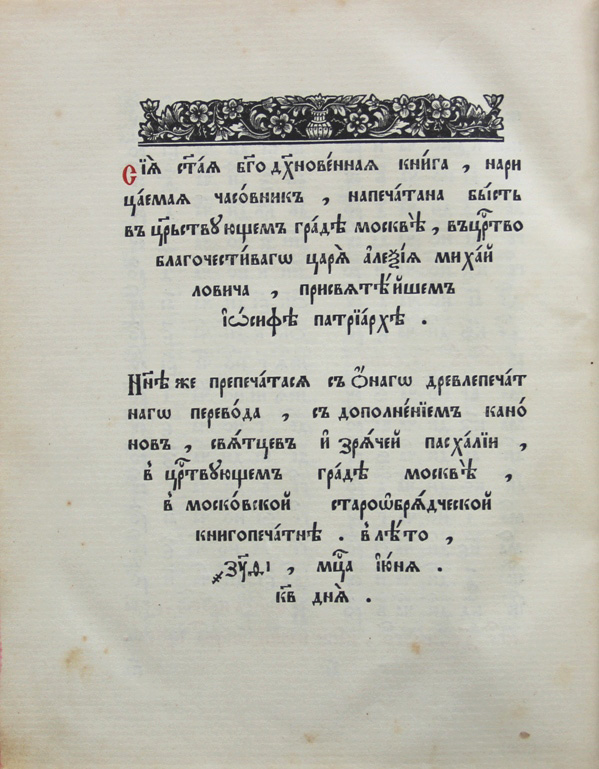 Сїѧ̀ ст҃аѧ бг҃одꙋхнове́ннаѧ кни́га , нари
ца́емаѧ часо́вникъ , напеча́тана бы́сть
въ цр҃ьствꙋющемъ гра́дѣ москвѣ̀ , въцр҃тво
благочести́вагѡ царѧ̀ а҆леѯі́ѧ миха́й
ловича , присвѧтѣ́йшемъ
і҆ѡ́сифѣ патрїа́рхѣ .
Нн҃ѣ же препеча́тасѧ съ ѻ҆́нагѡ древлепеча́т
нагѡ перево́да , съ дополне́нїемъ кано́
новъ , свѧ́тцевъ и҆ зрѧ́чей пасха́лїи ,
в цр҃твꙋющемъ гра́дѣ москвѣ̀ ,
в моско́вской староѡбрѧ́дческой
книгопеча́тнѣ . в лѣ́то ,
мц҃а і҆ю́нѧ .
кв҃ днѧ̀ .